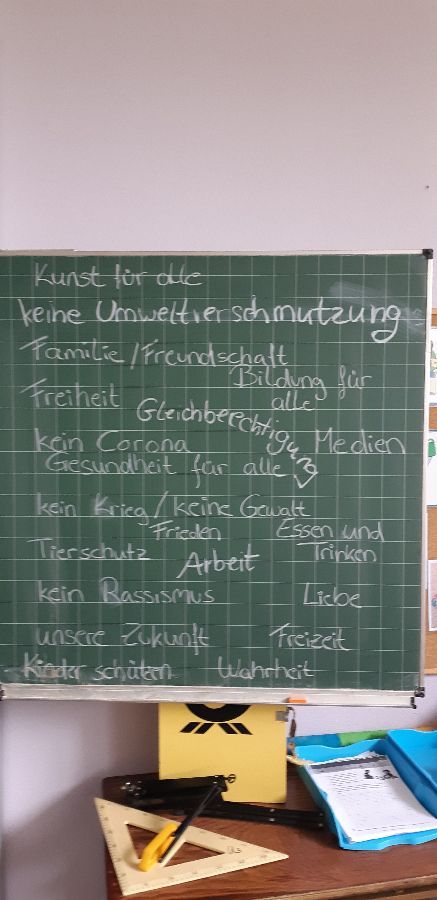 Kunst für alle
keine Umweltverschmutzung
Familie/Freundschaft
Bildung für
alle
Freiheit
Gleichberechtigung
kein Corona
Medien
Gesundheit für alle
kein Krieg/keine Gewalt
Frieden
Essen und
Trinken
Tierschutz
Arbeit
kein Rassismus
Liebe
unsere Zukunft
Freizeit
Kinder schützen
Wahrheit